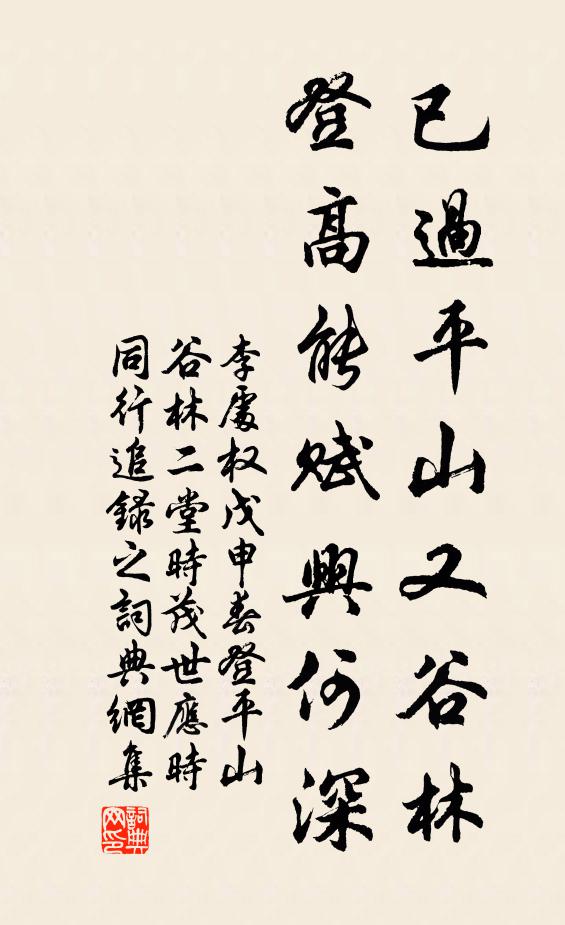 已過平山又谷林
登高能賦興何深
李處权戊申春登平山
谷林二堂時茂世應時
同行追録之詞典網集
詞典网印